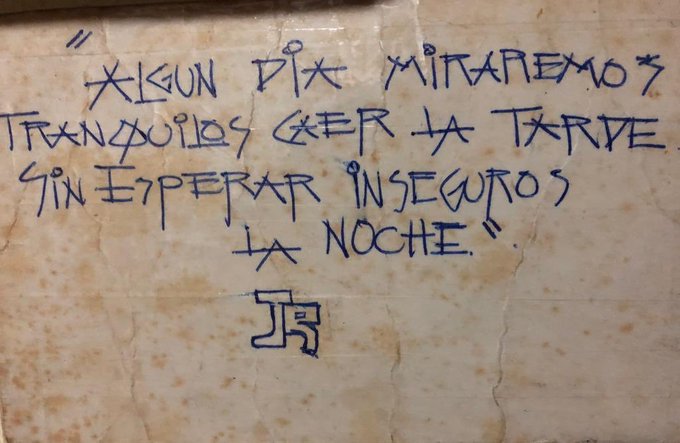 "ALGUN DIA MIRAREMOS
TRANQUILOS CAER LA TARDE
SIN ESPERAR INSEGUROS
LA NOCHE."
JR